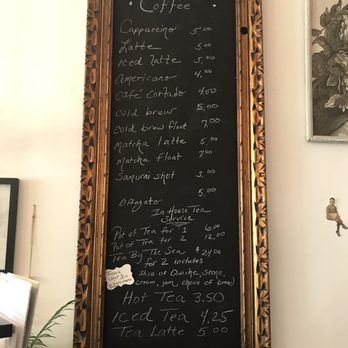 Coffee
Cappuccino 5.00
Latte 5.00
Iced latte 5.00
Americano 4.00
Café cortado 4.50
Cold brew 5.00
Cold brew float 7.00
Matcha latte 5.00
Matcha float 7.00
Samurai shot 3.00
Affogato 5.00
In House Tea
Service
Pot of Tea for 1 6.00
Pot of Tea for 2 12.00
Tea By The Sea $24.00
for 2 includes
slice of Quiche, scone,
cream, jam, choice of bread
Hot Tea 3.50
Iced Tea 4.25
Tea Latte 5.00